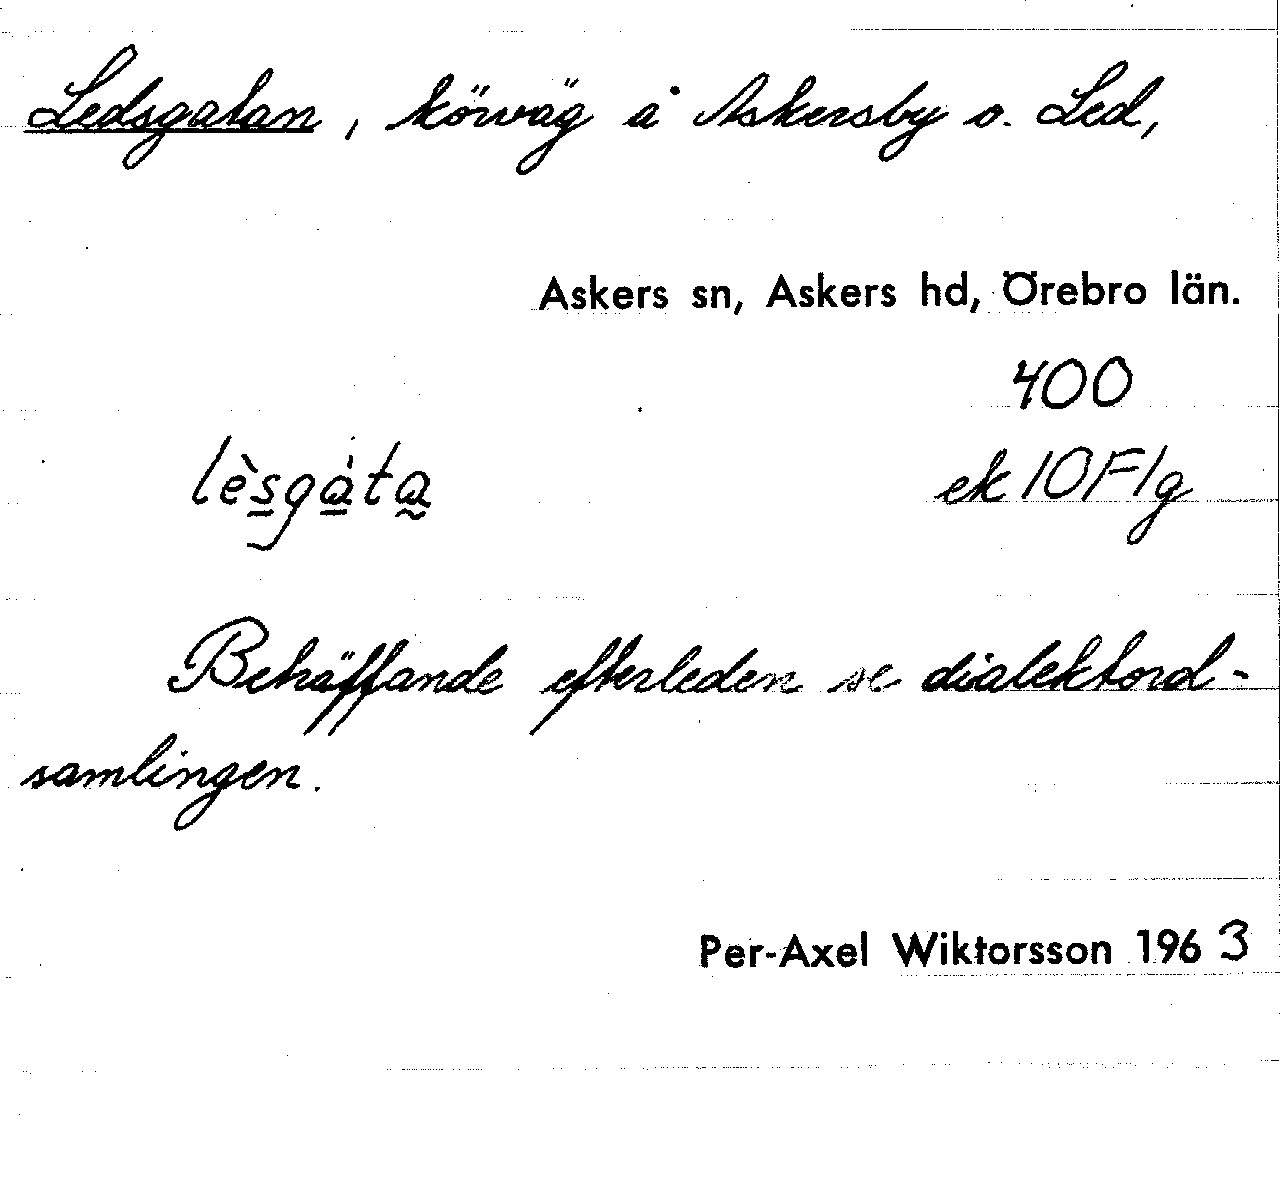 Ledsgatan, körväg å Askersby o. Led,
Askers sn, Askers hd, Örebro län.
400
lèsgáta
ek 10F1g
Beträffande efterleden se dialektord-
samlingen.
Per-Axel Wiktorsson 1963